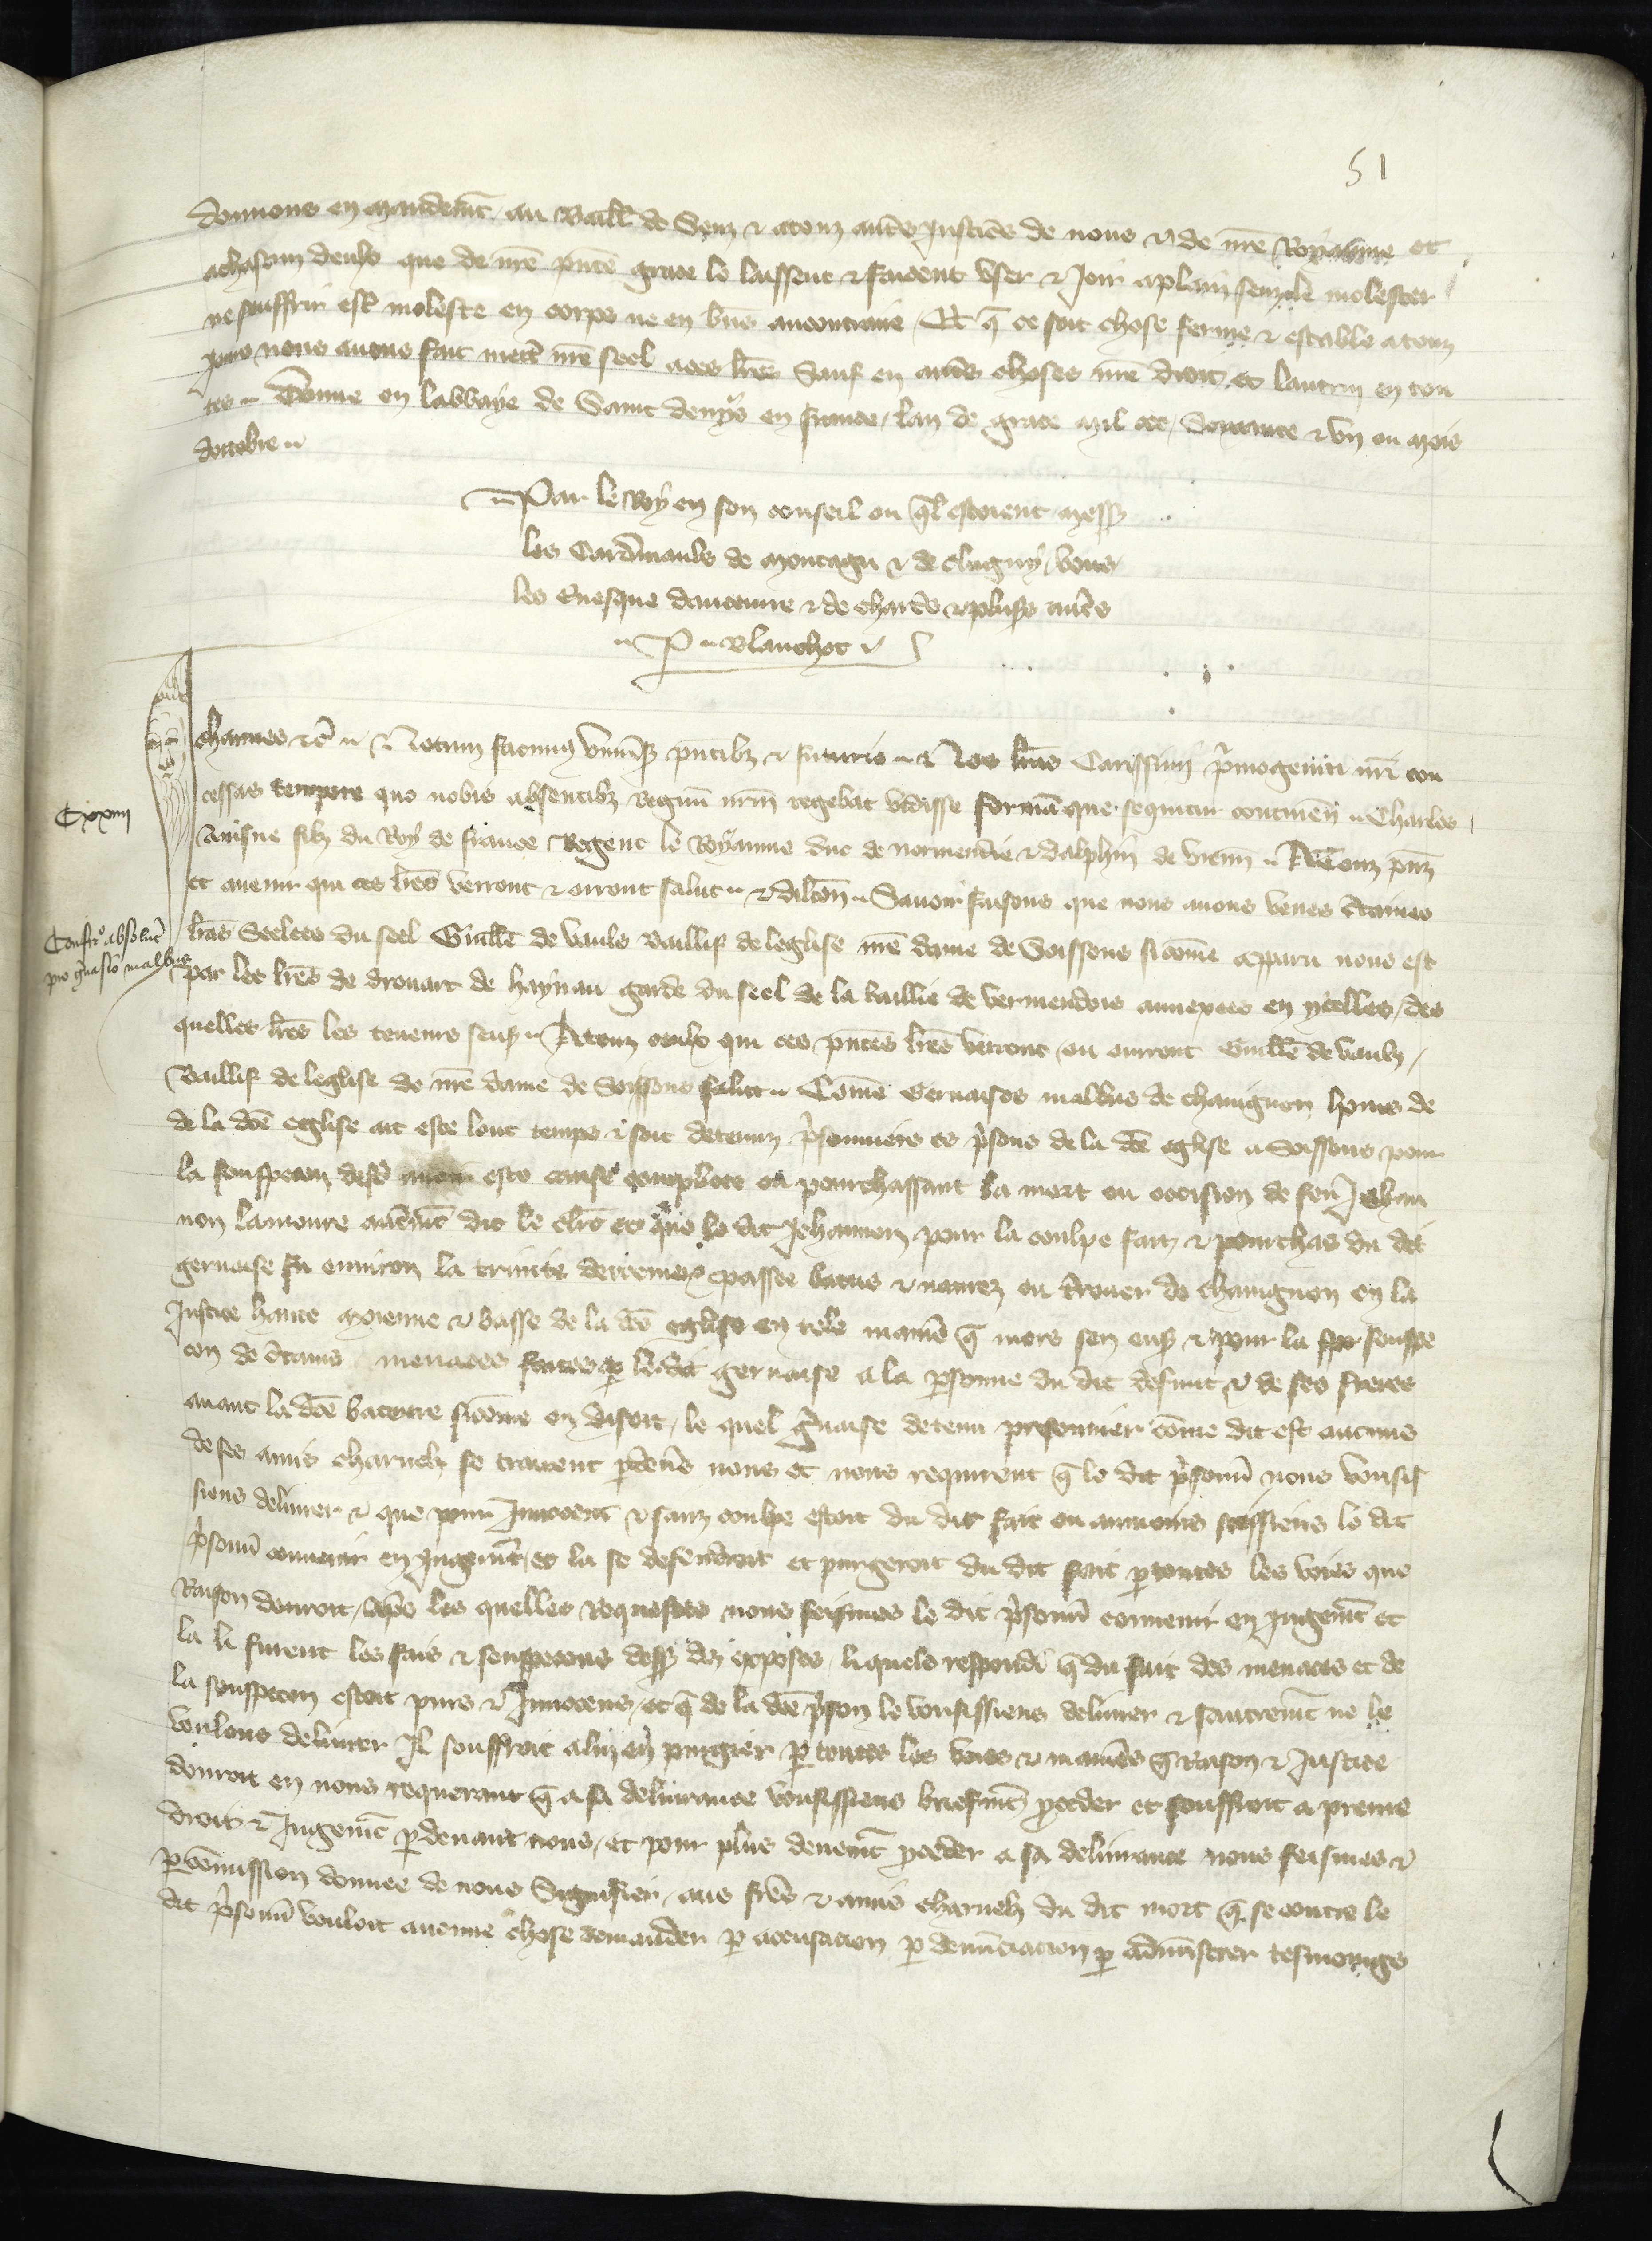 51
donnons en mandemt au Baill de Senz & a touz autres Justiciers de nous & de nre Royaume et
a chascun deulx que de nre pnte grace le laissent & facent user & joir a plain senz le molester
ne souffrir estre moleste en corps ne en biens au contraire Et q ce soit chose ferme & estable a touz
jours nous avons fait mettre nre seel a ces lres Sauf en autres choses nre droit et lautruy en tou
tes Donne en labbaye de Saint denys en france lan de grace mil ccc Soixante & un ou mois
doctobre
Par le Roy en son conseil ou ql estoient mess
les Cardinaulx de montagu & de clugny vous
les Evesque daucerre & de chartres & plus autres
P Blanchet
Charles &c Notum facimus universis pntibz & futuris Nos lras Carissimi primogeniti nri con
cessas tempore quo nobis absentibz regnu nrm regebat vidisse formā que sequitur continen Charles
Ainsne filz du Roy de france Regent le Royaume duc de normendie & dalphin de vienn A Touz pns
et avenir qui ces lres verront & orront salut & dilcon Savoir faisons que nous avons veues ctaines
lres Seelees du seel Guille de vaulx Baillif de leglise nre dame de Soissons si come apparu nous est
par les lres de drouart de haynau garde du seel de la baillie de vermendois annexees en ycelles des
quelles lres les teneurs sens A touz ceulx qui ces pntes lres verront ou orront Guille de vaulx
Baillif de leglise de nre dame de Soissons salut Come Gervaises malbus de chavignon homs de
de la dce eglise ait este lonc temps & soit detenuz prisonniers es prisons de la dce eglise a Soissons pour
la souspecon avoir este complice en pourchassant la mort ou occision de feu Jehan
non lamoure autmt dit le clerc et que le dit Jehannon pour la coulpe fait & pourchas du dit
gervaise fu environ la trinite derreniere passee batus & navrez ou trouer de chavignon en la
Justice haute moienne & basse de la dce eglise en tele maniere q mors sen ens & pour la souspe
con de ctains menaces faites p ledit gervaise a la psonne du dit defunt & de ses freres
avant la dce bateure si come on disoit le quel gervaise detenu prisonnier come dit est aucuns
de ses amis charnelz se traient pdevs nous et nous requirent q le dit prisonn nous vousis
siens delivrer & que pour Innocent & sanz coulpe estoit du dit fait ou au moins feissiens le dit
prisonn convenir en jugemt et la se defendroit et purgeroit du dit fait p toutes les voies que
Raison donroit Apres les quelles requestes nous feismes le dit prisonn convenir en jugemt et
la li furent les fais & souspecons dess diz exposes liquels respondi q du fait des menaces et de
la souspecon estoit purs & Innocens et q de la dce prison le vousissiens delivrer & sautremt ne le
voulons delivrer Il souffroit a luy en purgier p toutes les voies & manieres q Raison & Justice
donroit en nous requerant q a sa delivrance vousissiens briefmt proceder et souffroit a prenre
droit & Jugemt pdevant nous et pour plus deuemt proceder a sa delivrance nous feismes &
p comission donnee de nous Signifier aus freres & amis charnelz du dit mort q se contre le
dit prisonn vouloit aucune chose demander p accusacion p denunciacion p administrer tesmoings
Cxxiiii
Confirmo absolucois
pro gervasio malbus